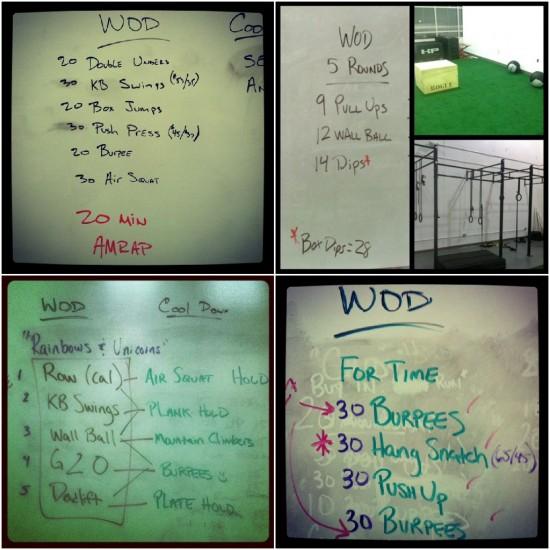 WOD
20 Double Unders
30 KB Swings
20 Box Jumps
30 Push Press
20 Burpee
30 Air Squat
20 min
AMRAP
Coo
SE
Am
WOD
5 Rounds
9 Pull Ups
12 Wall Ball
14 Dips*
*Box Dips = 28
HP
ROGUE
WOD
"Rainbows & Unicorns"
1 Row (cal)
2 KB Swings
3 Wall Ball
4 G2O
5
Cool Down
Air Squat Hold
Plank Hold
Mountain Climbers
Burpees
Plate Hold
WOD
For Time
30 Burpees
*30 Hang Snatch (65/45)
30 Push Up
30 Burpees